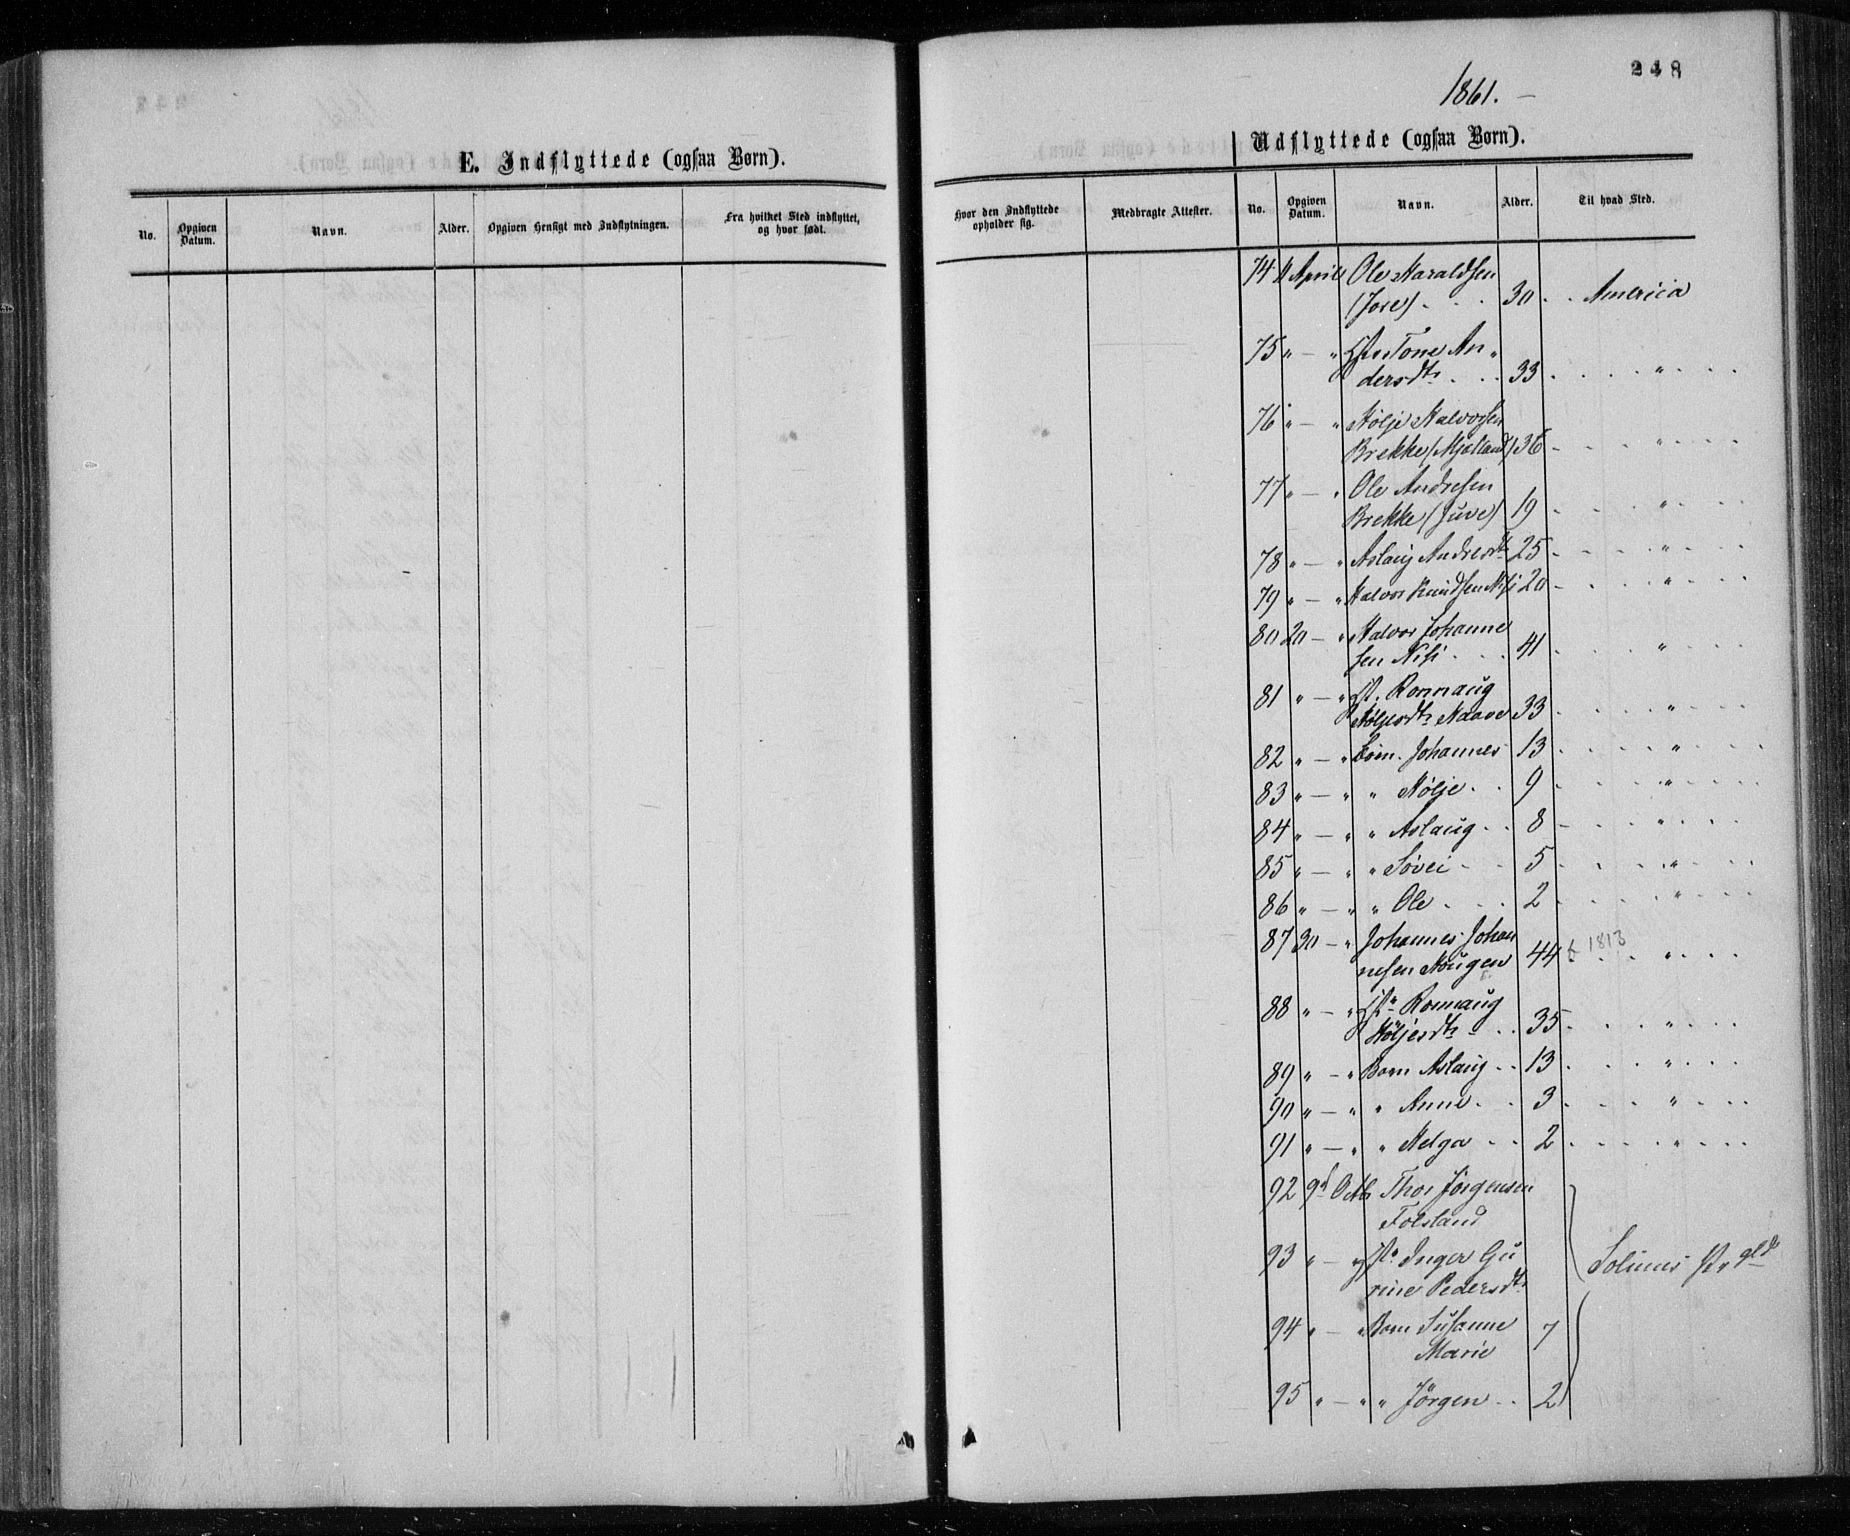 248
1861. –
E. Indflyttede (ogsaa Børn).
Udflyttede (ogsaa Børn).
No. Opgiven Datum. Navn. Alder. Opgiven Hensigt med Indflytningen. Fra hvilket Sted indflyttet, og hvor født.
Hvor den Indflyttede opholder sig. Medbragte Attester. No. Opgiven Datum. Navn. Alder. Til hvad Sted.
74 April Ole Haraldsen
(Jore) . . . 30 . . America
75 " — " Tone An-
dersdtr . . . 33 . . . " . . .
76 " — " Kølje Halvorsen
Brekke (Mjelland) 36 - . . " . .
77 " — " Ole Andresen
Brekke (Juve) 19 . . . " . .
78 " — " Aslaug Andresdtr 25 . . . " . .
79 " — " Halvor Knudsen Nisi 20 - . . " . .
80 20 — " Halvor Johanne
sen Nisi . . . 41 . . . " . .
81 " — " H. Ronnaug
Køljesdtr Naave 33 . . . " . .
82 " — " Børn. Johannes 13 . . . " . .
83 " — " " Kølje . . 9 . . . " . .
84 " — " " Aslaug . . 8 - . . " . .
85 " — " " Søvei . . 5 . . . " . .
86 " — " " Ole . . . 2 . . . " . .
87 30 — " Johannes Johan
nesen Haugen 44 f 1813 . " . .
88 " — " Ronnaug
Køljesdtr . . 35 . . . " . .
89 " — " Børn Aslaug . . 13 . . . " . .
90 " — " " Anne . . 3 . . . " . .
91 " — " " Helga . . 2 . . . " . .
92 9d Octb Thor Jörgensen
Folsland
93 " — " Inger Gu
rine Pedersdtr
Solums Pr.gld
94 " — " Børn Susanne
Marie 7
95 " — " " Jörgen . . 2